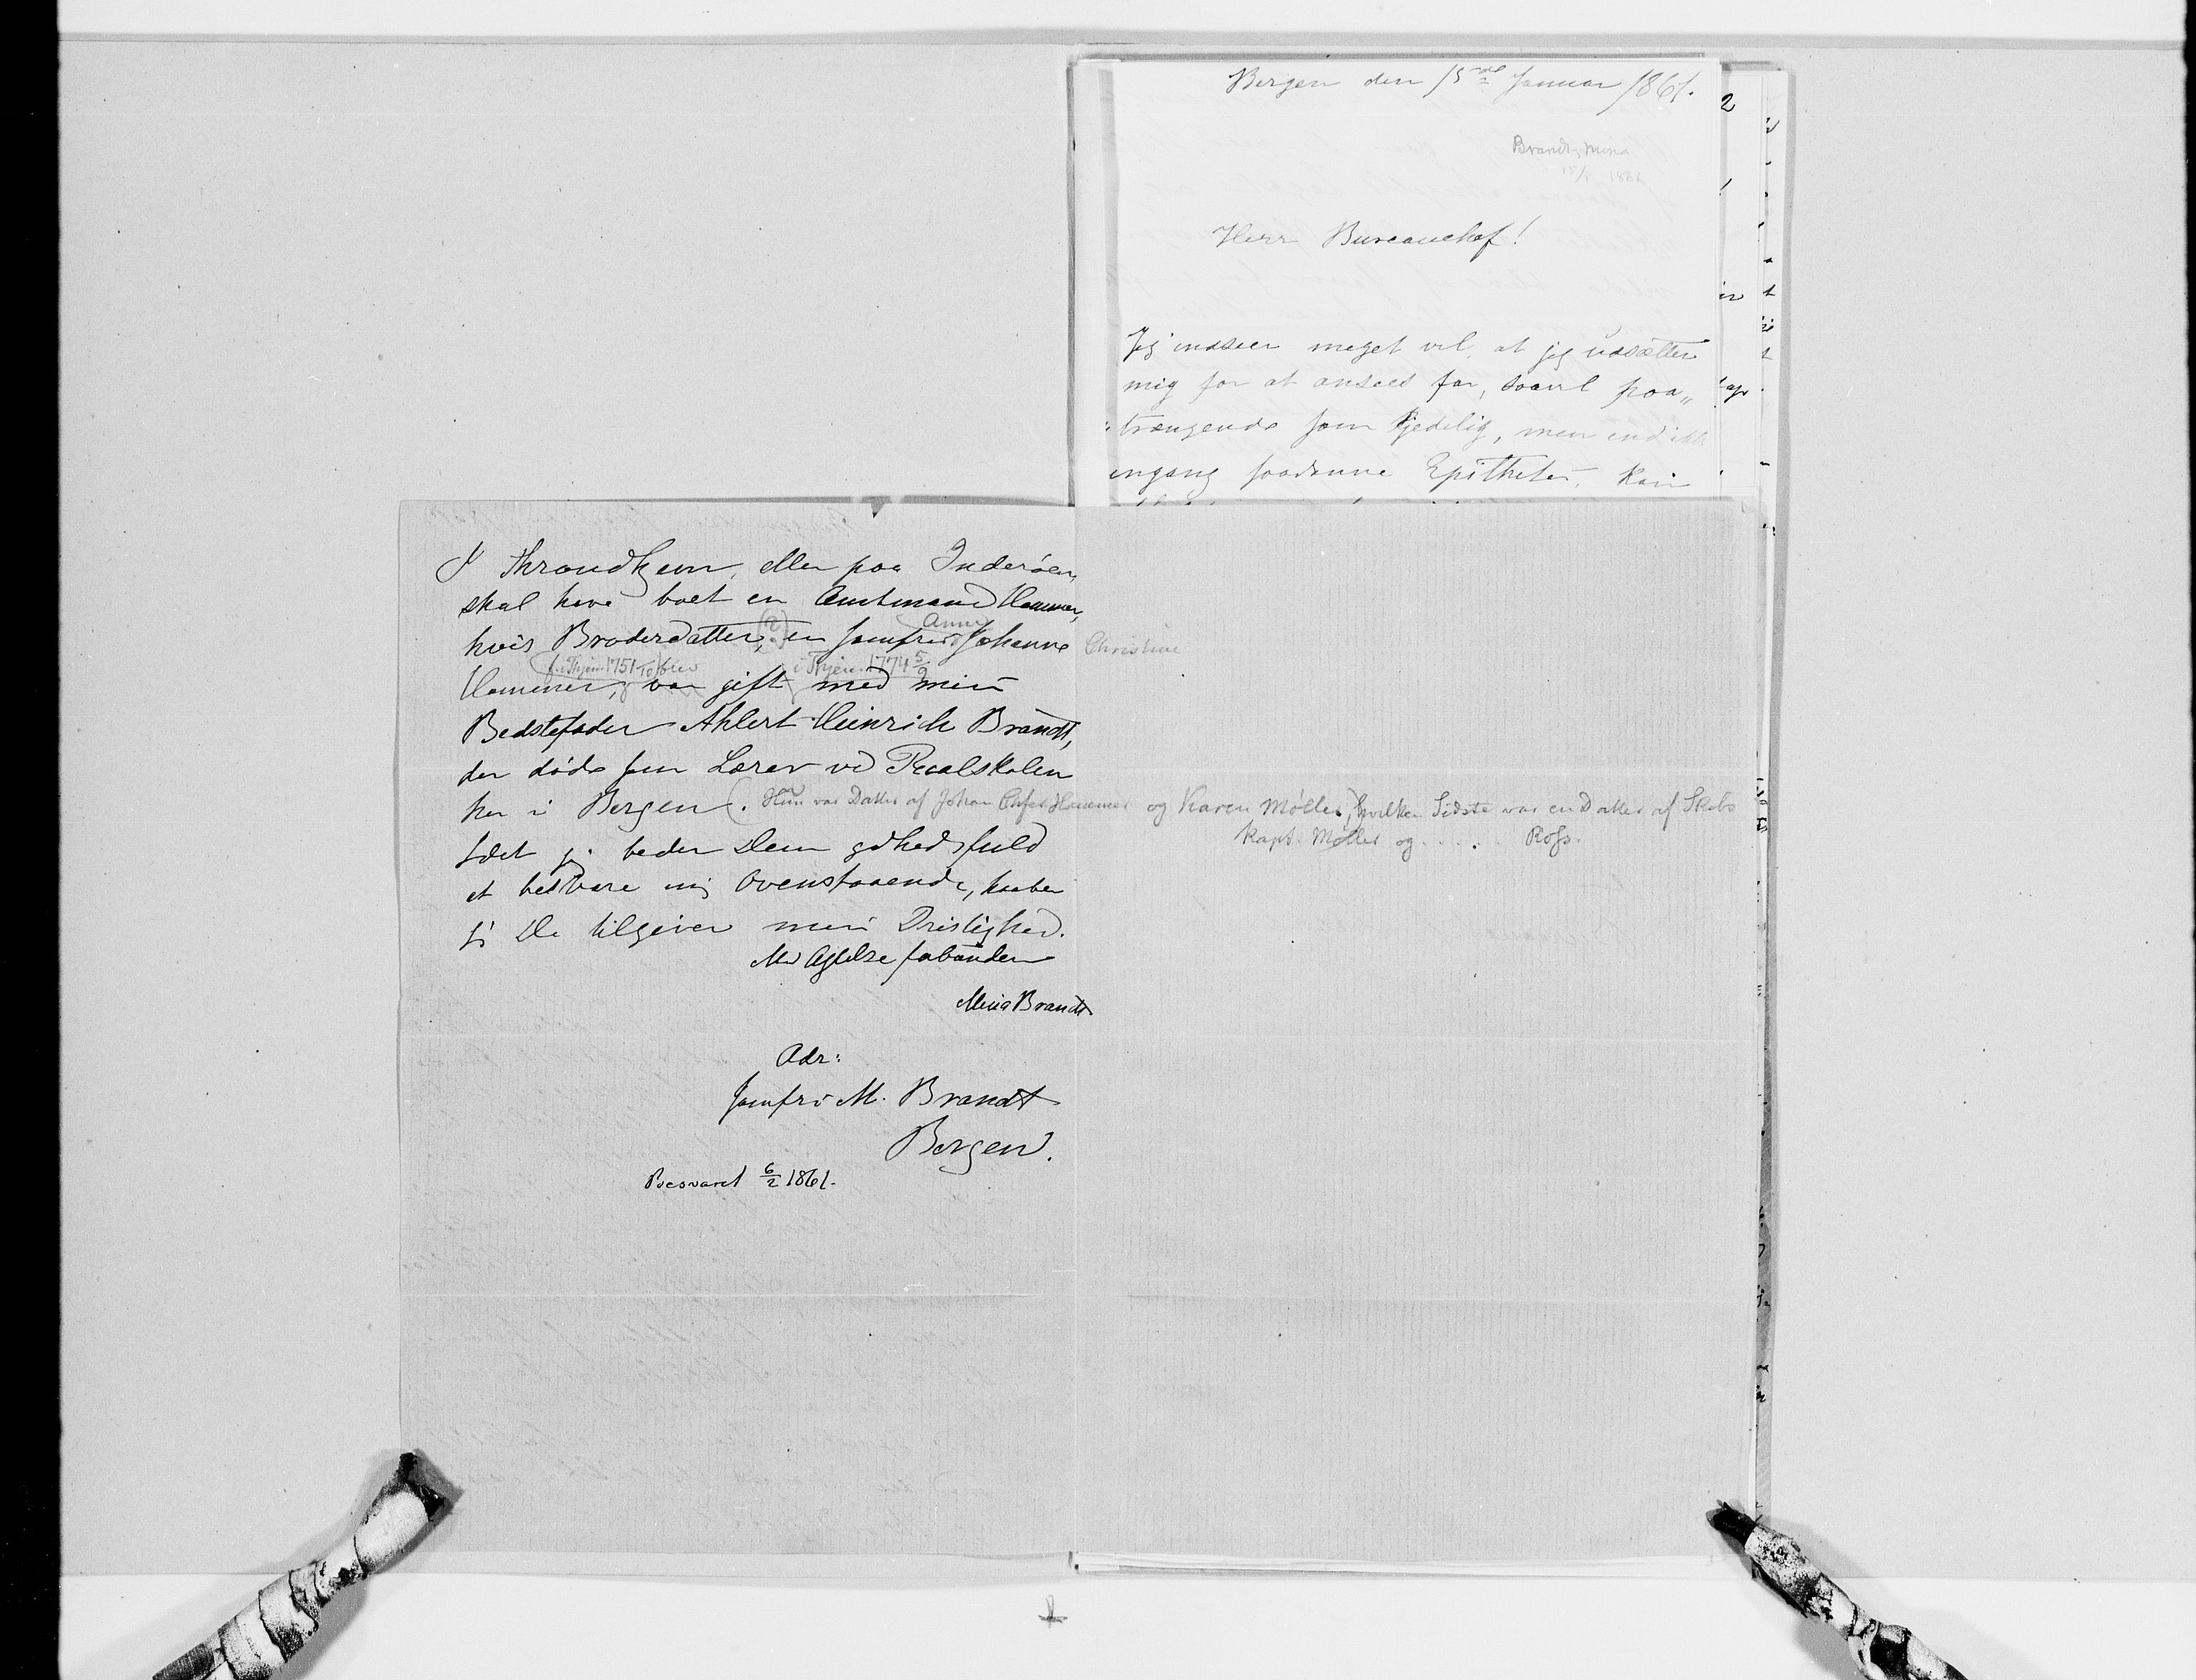 Bergen den 15de Januar 1861.
Brandt, Mina
15/1 1861
Herr Bureauchef!
Jeg indseer meget vel, at jeg udsætter
mig for at ansees for, saavel paa„
„trængende som kjedelig, men end ikke
engang saadanne Epitheter, kan
I Throndhjem, eller paa Inderöen,
skal have boet en Amtmand Hammer,
hvis Broderdatter, (?) en Jomfru Anne Johanne Christine
f. i Thjem 1751 i Thjem 1774 5/9
Hammer, var gift med min
Bedstefader Ahlert Heinrich Brandt,
der døde som Lærer ved Realskolen
her i Bergen. (Hun var Datter af Johan Chr Hammer og Karen Møller, hvilken Sidste var en Datter af Skibs
Kapt. Møller og . . . . . Rofs.
Idet jeg beder Dem godhedsfuld
at besvare mig Ovenstaaende, haaber
jeg De tilgiver min Dristighed.
Med Agtelse forbunden
Mina Brandt
Adr:
Jomfru M. Brandt
Bergen.
Besvaret 6/2 1861.